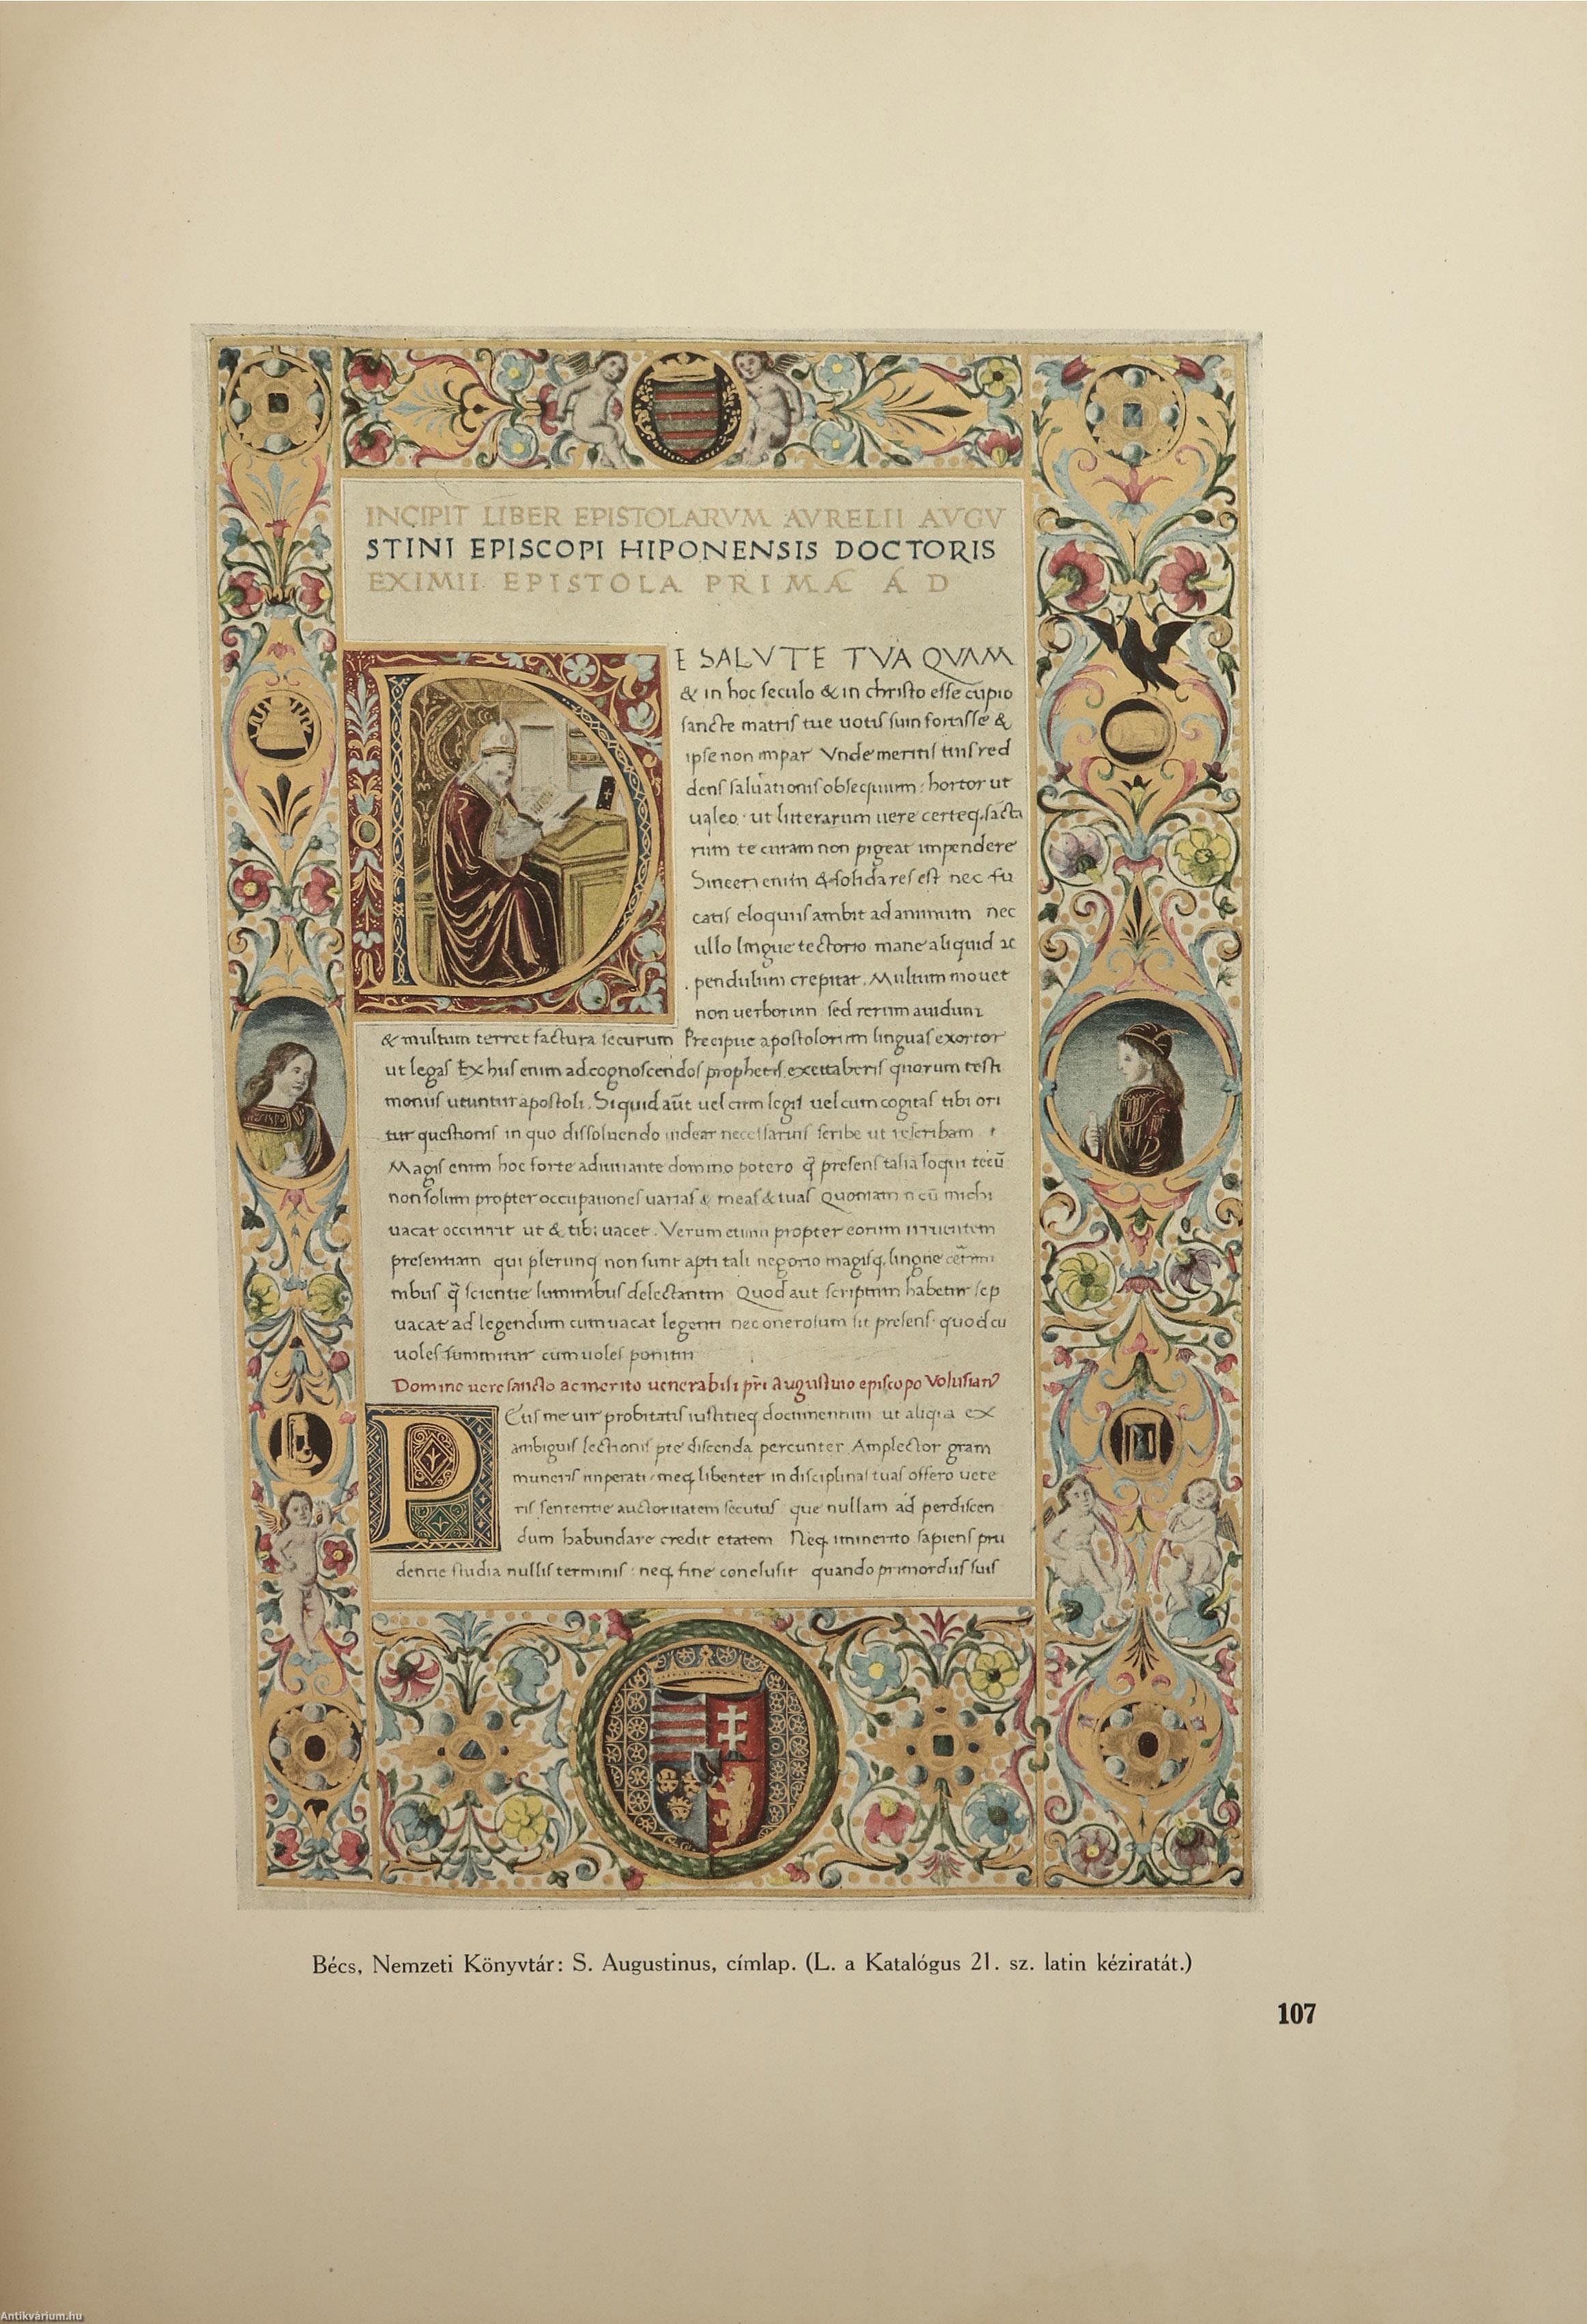 INCIPIT LIBER EPISTOLARVM AVRELII AVGV
STINI EPISCOPI HIPONENSIS DOCTORIS
EXIMII. EPISTOLA PRIMA AD
DE SALVTE TVA QVAM
& in hoc seculo & in christo esse cupio
sancte matris tue uotis sum fortasse &
ipse non impar Vnde meritis tuis red
dens saluationis obsequium: hortor ut
ualeo. ut litterarum uere certeq. sacta
rum te curam non pigeat impendere
Sinceri enim & solida res est nec fu
catis eloquiis ambit ad animum nec
ullo lingue tectorio mane aliquid ac
pendulum crepitat. Multum mouet
non uerborum sed rerum auidum
& multum terret factura securum Precipue apostolorum linguas exortor
ut legas Ex his enim ad cognoscendos prophetis excitaberis quorum testi
moniis utuntur apostoli. Si quid aūt uel cum legis uel cum cogitas tibi ori
tur questionis in quo dissoluendo uidear necessarius scribe ut rescribam
Magis enim hoc forte adiuuante domino potero q̄ presens talia loqui tecū
non solum propter occupationes uarias & meas & tuas Quoniam n cū michi
uacat occurrit ut & tibi uacet. Verum etiam propter eorum irruentem
presentiam qui plerunq non sunt apti tali negotio magisq. lingue certami
nibus q̄ scientie luminibus delectantur Quod aut scriptum habetur sep
uacat ad legendum cum uacat legenti nec onerosum sit presens. quod cu
uoles summitur cum uoles ponitur
Domino uere sancto ac merito uenerabili pr̄i Augustino episcopo Volusianus
PEtis me uir probitatis iustitieq documentum ut aliqua ex
ambiguis lectionis pre discenda percunter Amplector gram
muneris imperati. meq. libenter in disciplinas tuas offero uete
ris sententie auctoritatem secutus que nullam ad perdiscen
dum habundare credit etatem Neq. immerito sapiens pru
dentie studia nullis terminis: neq. fine conclusit quando primordiis suis
Bécs, Nemzeti Könyvtár: S. Augustinus, címlap. (L. a Katalógus 21. sz. latin kéziratát.)
107
Antikvárium.hu